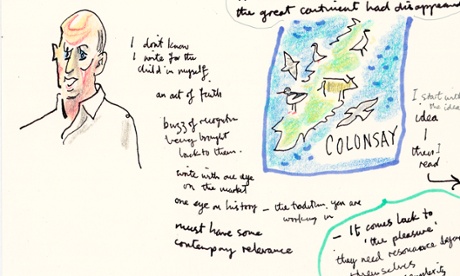 the great continent had disappeared
I don't know
I write for the
child in myself.
an act of faith
buzz of recognition
being brought
back to them.
write with one eye
on the market
one eye on history – the tradition you are
working in
must have some
contempory relevance
COLONSAY
I start with
the idea
idea
then I
read
– It comes back to
'the pleasure'
they need resonance
themselves